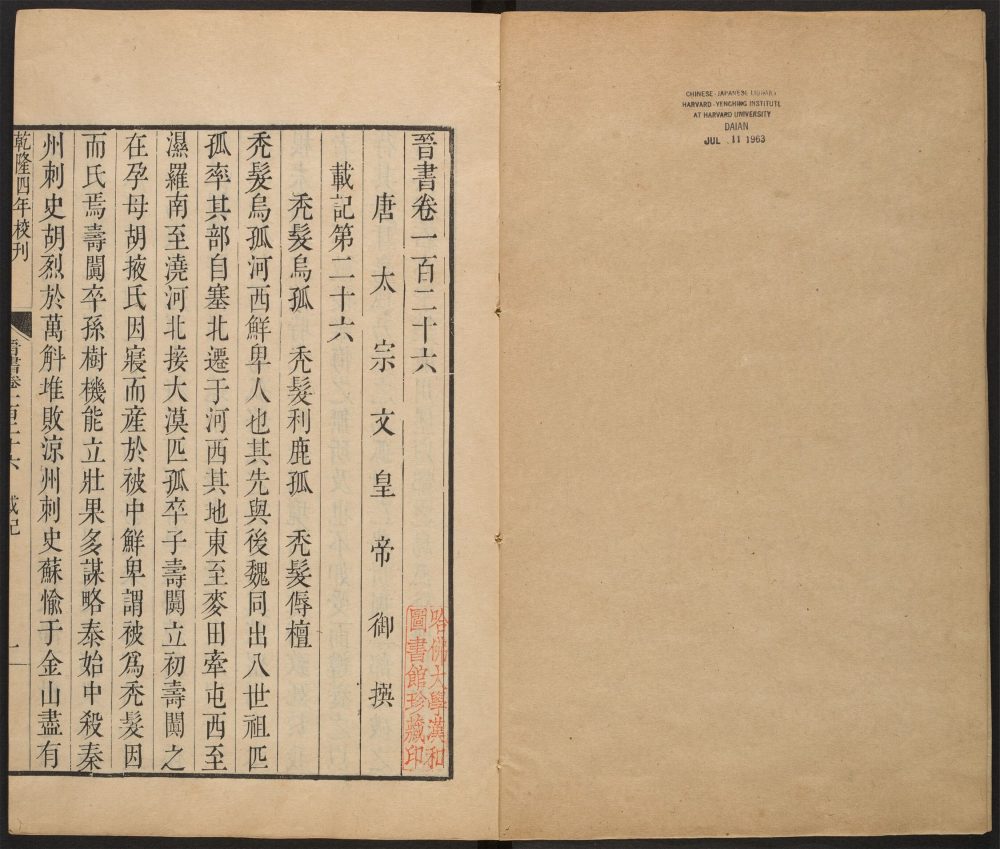 CHINESE-JAPANESE LIBRARY
HARVARD-YENCHING INSTITUTE
AT HARVARD UNIVERSITY
DAIAN
JUL 11 1963
晉書卷一百二十六
唐太宗文皇帝御撰
載記第二十六
禿髮烏孤 禿髮利鹿孤 禿髮傉檀
禿髮烏孤河西鮮卑人也其先與後魏同出八世祖匹
孤率其部自塞北遷于河西其地東至麥田牽屯西至
濕羅南至澆河北接大漠匹孤卒子壽闐立初壽闐之
在孕母胡掖氏因寢而産於被中鮮卑謂被爲禿髮因
而氏焉壽闐卒孫樹機能立壯果多謀略泰始中殺秦
州刺史胡烈於萬斛堆敗涼州刺史蘇愉于金山盡有
乾隆四年校刊
晉書卷一百二十六 載記 一
哈佛大學漢和
圖書館珍藏印